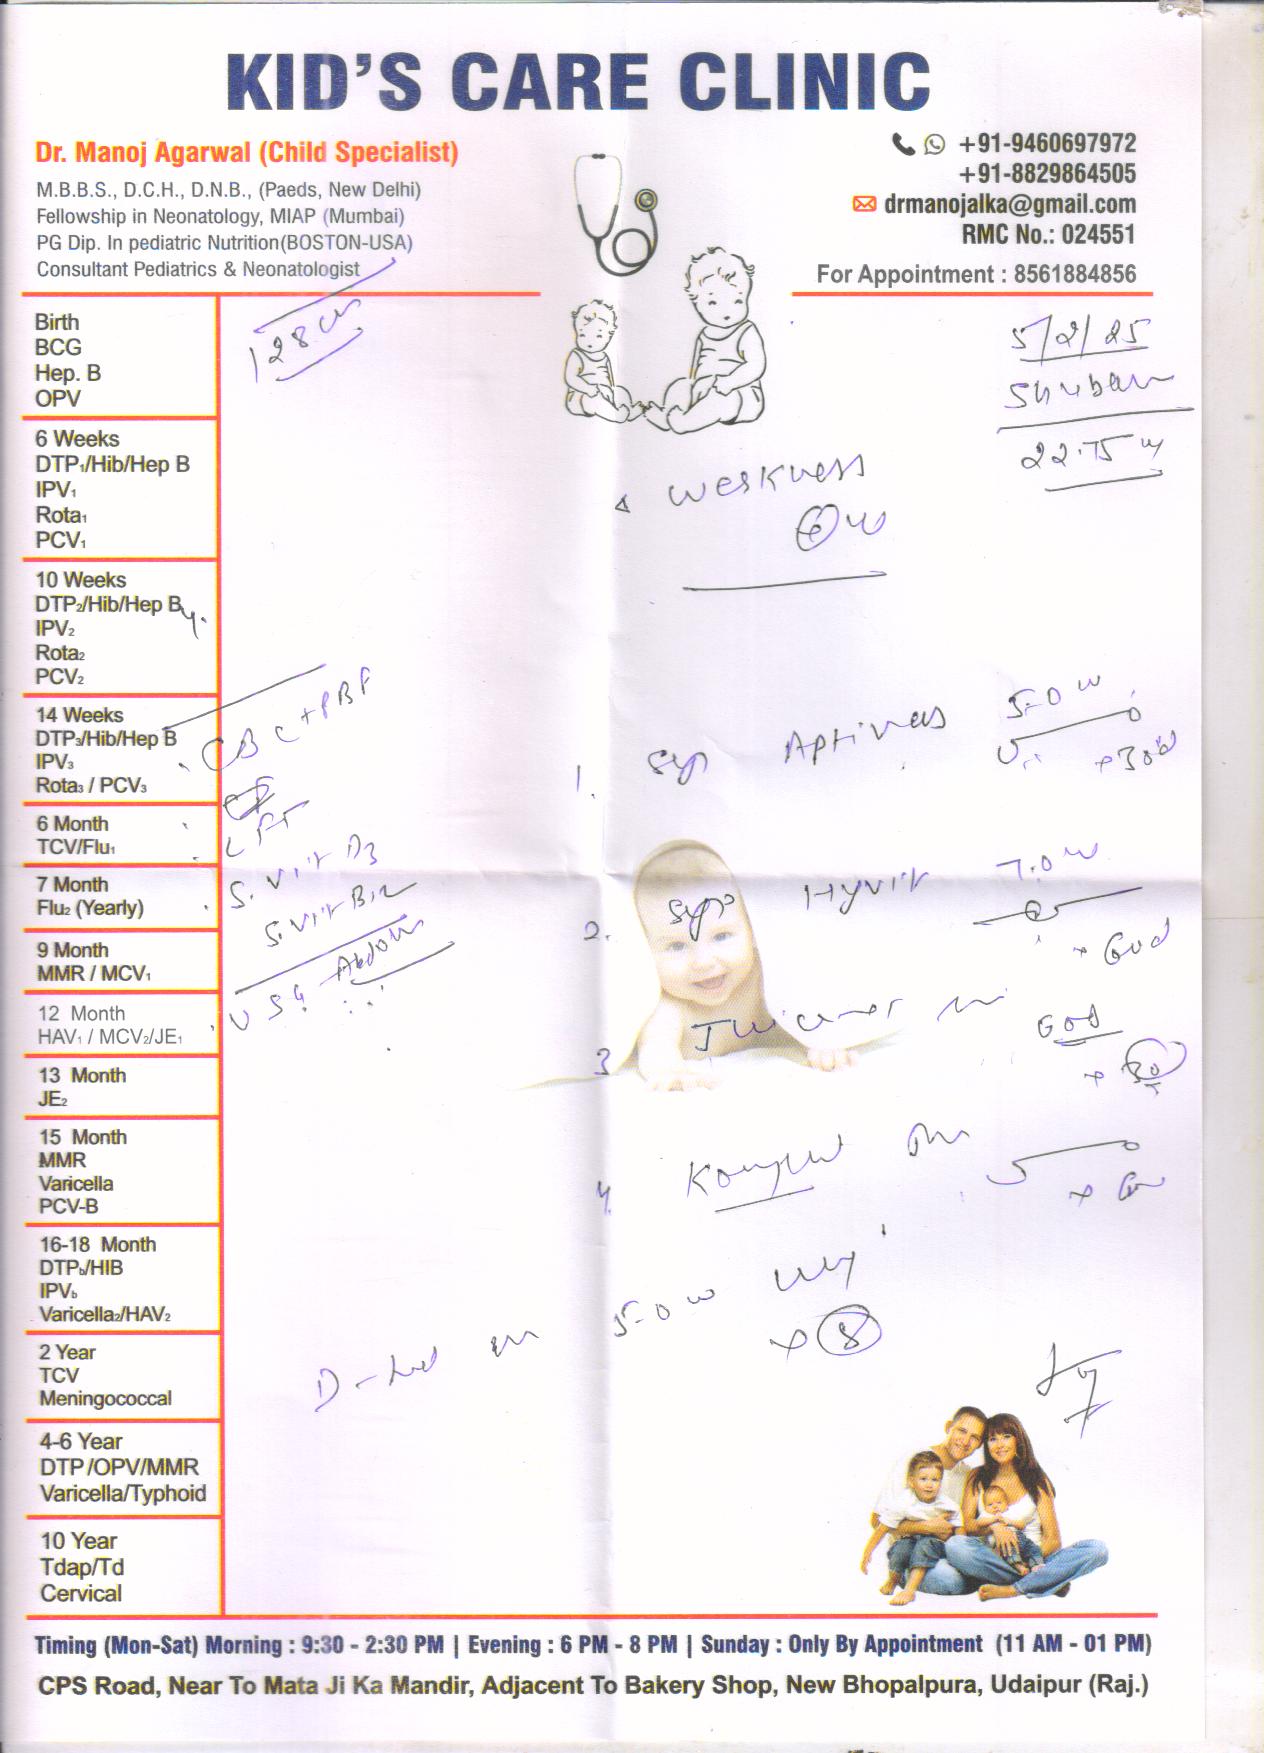 KID'S CARE CLINIC
Dr. Manoj Agarwal (Child Specialist)
M.B.B.S., D.C.H., D.N.B., (Paeds, New Delhi)
Fellowship in Neonatology, MIAP (Mumbai)
PG Dip. In pediatric Nutrition(BOSTON-USA)
Consultant Pediatrics & Neonatologist
+91-9460697972
+91-8829864505
drmanojalka@gmail.com
RMC No.: 024551
For Appointment : 8561884856
128 cm
5/2/25
Shubam
22.75
Weakness
Birth
BCG
Hep. B
OPV
6 Weeks
DTP1/Hib/Hep B
IPV1
Rota1
PCV1
10 Weeks
DTP2/Hib/Hep B
IPV2
Rota2
PCV2
14 Weeks
DTP3/Hib/Hep B
IPV3
Rota3 / PCV3
6 Month
TCV/Flu1
7 Month
Flu2 (Yearly)
9 Month
MMR / MCV1
12 Month
HAV1 / MCV2/JE1
13 Month
JE2
15 Month
MMR
Varicella
PCV-B
16-18 Month
DTPb/HIB
IPVb
Varicella2/HAV2
2 Year
TCV
Meningococcal
4-6 Year
DTP/OPV/MMR
Varicella/Typhoid
10 Year
Tdap/Td
Cervical
CBC + PBF
LFT
S. Vit D3
S. Vit B12
USG Abdom
1. Syp 5.0
2. Syp Hyvit 7.0
3
4.
5.0
x 8
Timing (Mon-Sat) Morning : 9:30 - 2:30 PM | Evening : 6 PM - 8 PM | Sunday : Only By Appointment (11 AM - 01 PM)
CPS Road, Near To Mata Ji Ka Mandir, Adjacent To Bakery Shop, New Bhopalpura, Udaipur (Raj.)